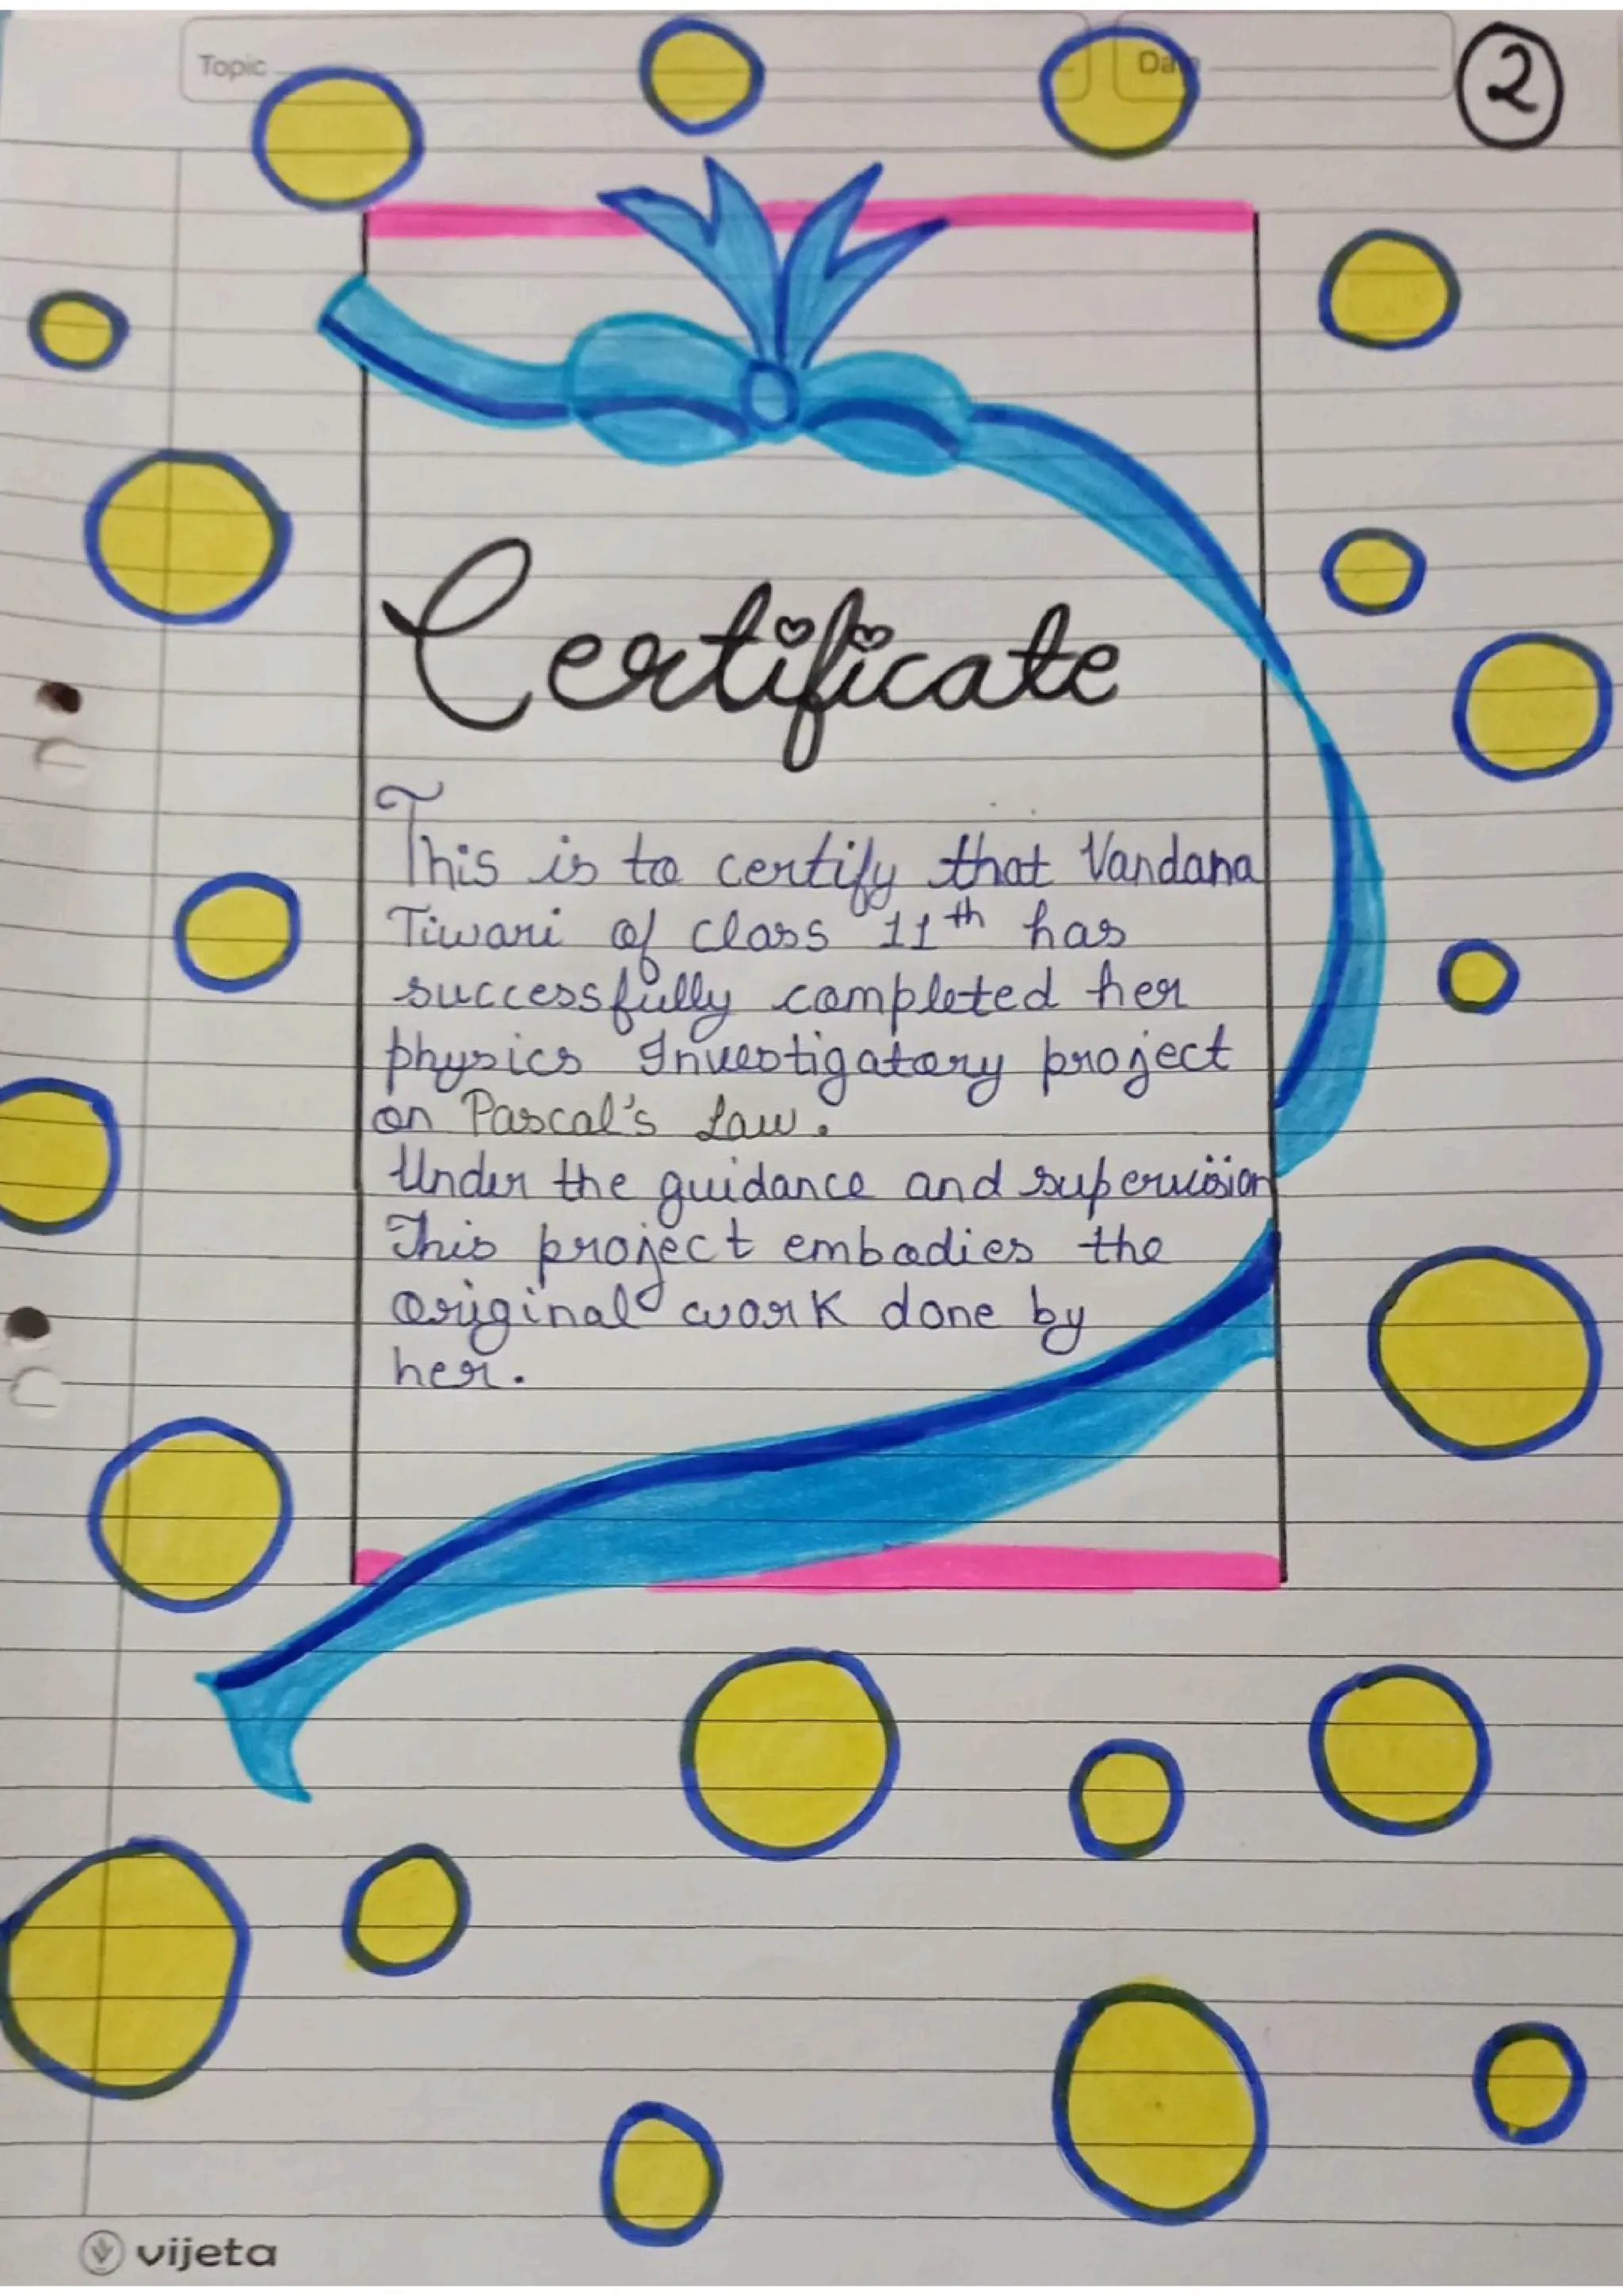 Topic
Date
2
Certificate
This is to certify that Vandana
Tiwari of class 11th has
successfully completed her
physics Investigatory project
on Pascal's Law.
Under the guidance and supervision
This project embodies the
original work done by
her.
vijeta